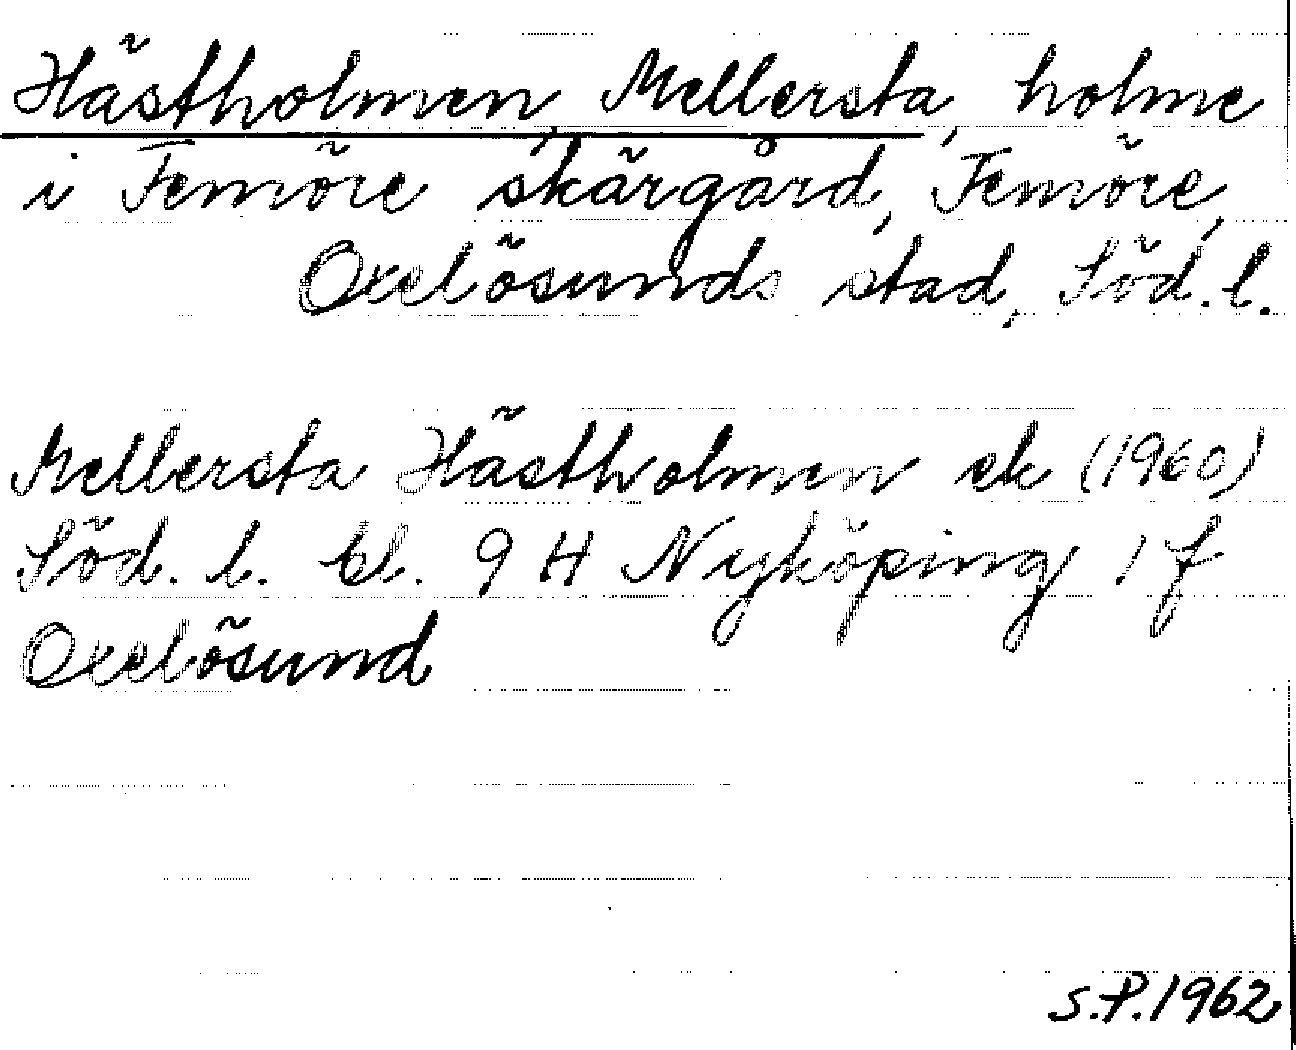 Hästholmen, Mellersta, holme
i Femöre skärgård, Femöre,
Oxelösunds stad, Söd. l.
Mellersta Hästholmen ek (1960)
Söd. l. bl. 9 H Nyköping 1 f
Oxelösund
S.P. 1962